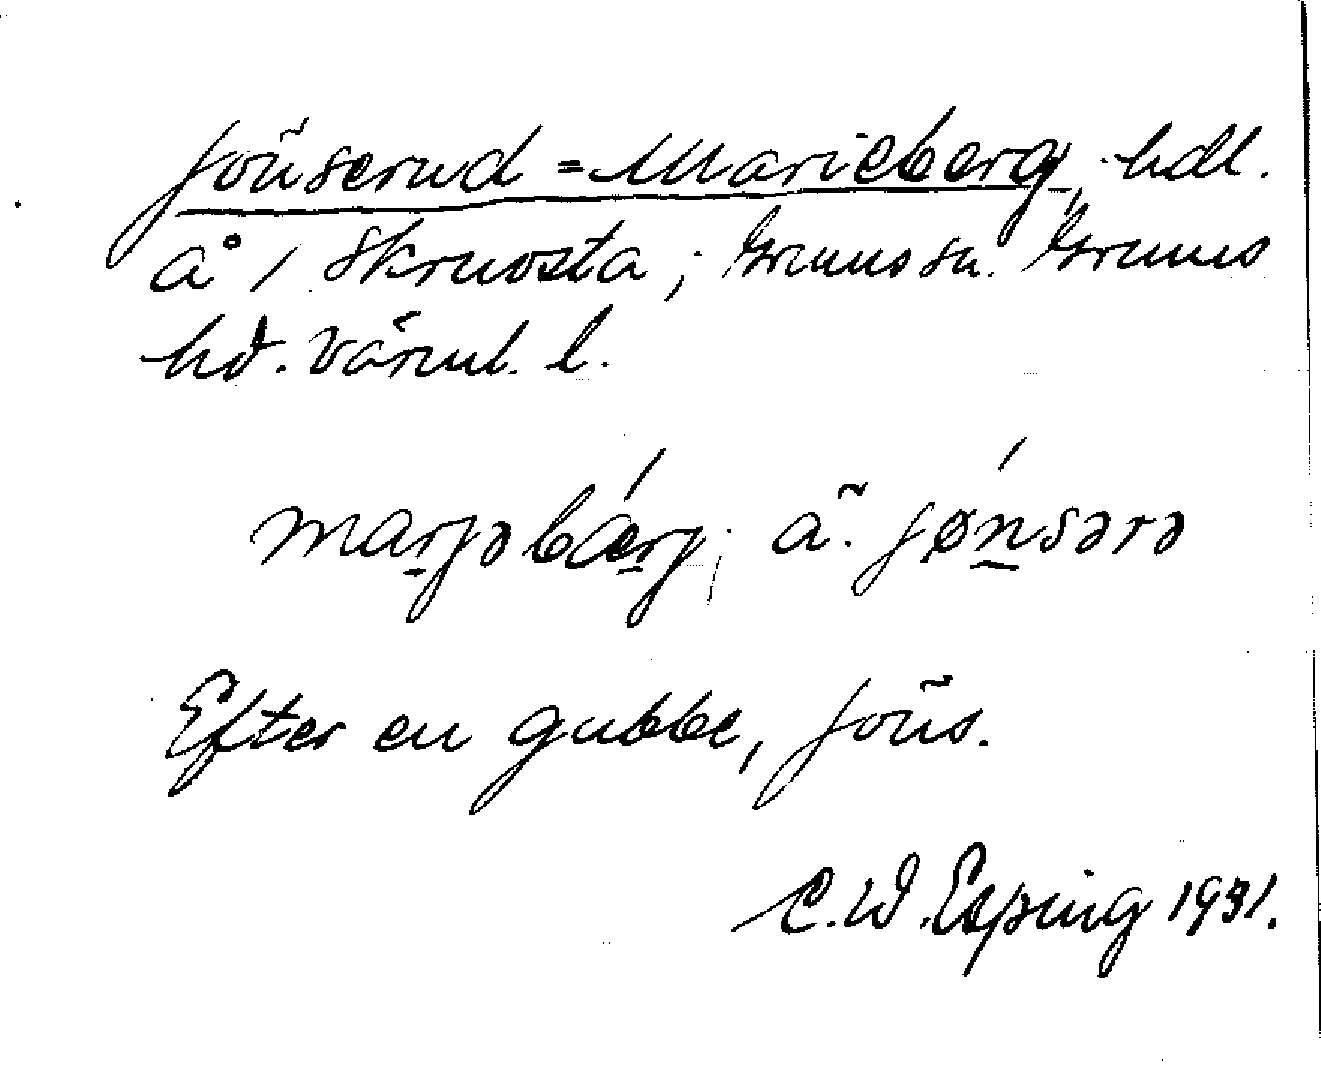 Jöñserud = Marieberg, hdl.
å 1 Skruvsta, Grums sn. Grums
hd. Värml. l.
marjəbærj; ä. jønsərə
Efter en gubbe, Jöñs.
C.W. Esping 1931.